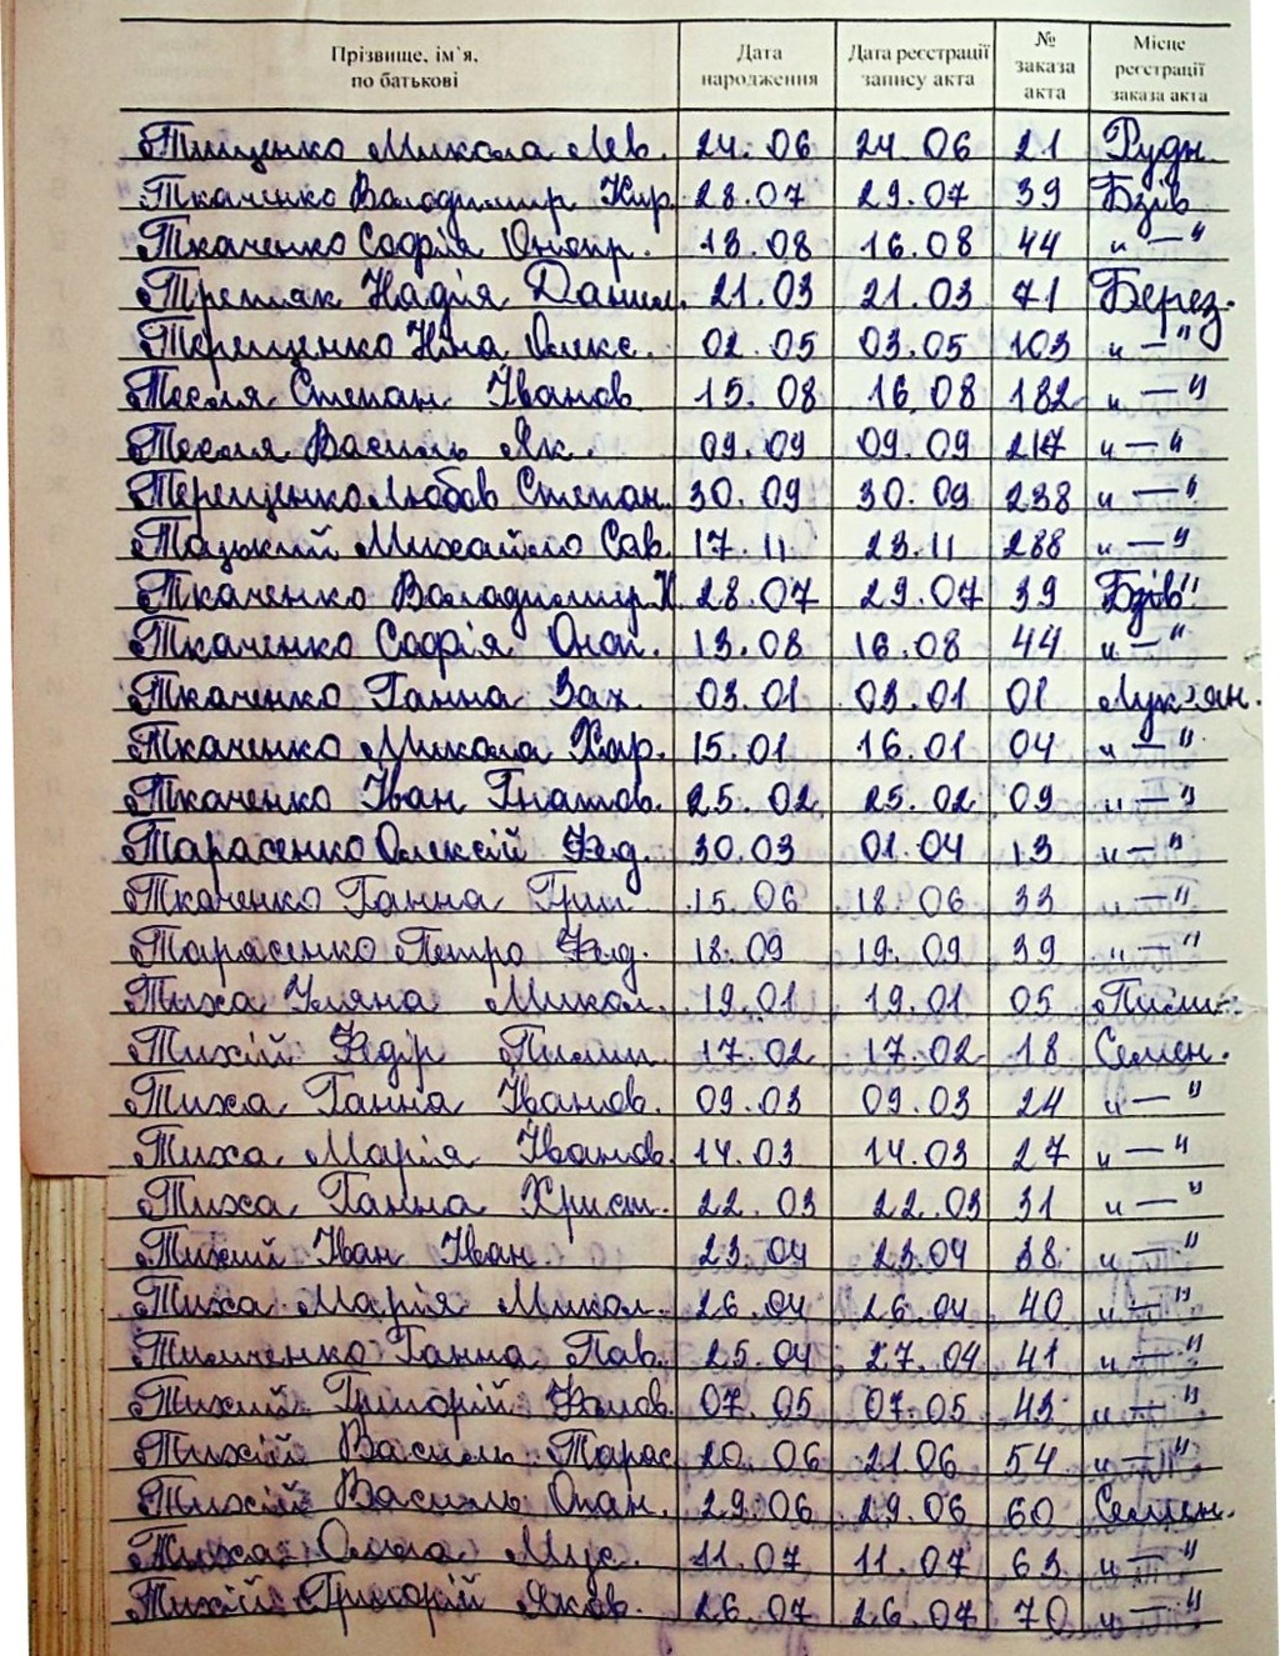 Прізвище, ім`я, по батькові Дата народження Дата реєстрації запису акта № заказа акта Місце реєстрації заказа акта
Тищенко Микола Лев. 24.06 24.06 21 Рудн.
Ткаченко Володимир Кир. 28.07 29.07 39 Бзів
Ткаченко Софія 13.08 16.08 44 "—"
Третяк Надія Данил. 21.03 21.03 71 Берез.
Терещенко Ніна Олекс. 02.05 03.05 103 "—"
Тесля Степан Іванов 15.08 16.08 182 "—"
Тесля Василь Як. 09.09 09.09 217 "—"
Терещенко Любов Степан. 30.09 30.09 238 "—"
Тоцький Михайло Сав. 17.11 23.11 288 "—"
Ткаченко Володимир К. 28.07 29.07 39 Бзів"
Ткаченко Софія Оноп. 13.08 16.08 44 "—"
Ткаченко Ганна Зах. 03.01 03.01 01 Лук'ян.
Ткаченко Микола Хар. 15.01 16.01 04 "—"
Ткаченко Іван Гнатов. 25.02 25.02 09 "—"
Тарасенко Олексій Фед. 30.03 01.04 13 "—"
Ткаченко Ганна Григ 15.06 18.06 33 "—"
Тарасенко Петро Фед. 18.09 19.09 39 "—"
Тиха Уляна Микол. 19.01 19.01 05
Тихій Федір Пилип. 17.02 17.02 18 Семен.
Тиха Ганна Іванов. 09.03 09.03 24 "—"
Тиха Марія Іванов. 14.03 14.03 27 "—"
Тиха Ганна Христ. 22.03 22.03 31 "—"
Тихий Іван Іван. 23.04 23.04 38 "—"
Тиха Марія Микол. 26.04 26.04 40 "—"
Тимченко Ганна Пав. 25.04 27.04 41 "—"
Тихий Григорій 07.05 07.05 43 "—"
Тихій Василь Тарас 20.06 21.06 54 "—"
Тихій Василь Опан. 29.06 29.06 60 Семен.
Тиха Ольга Мус. 11.07 11.07 63 "—"
Тихій Григорій Яков. 26.07 26.07 70 "—"